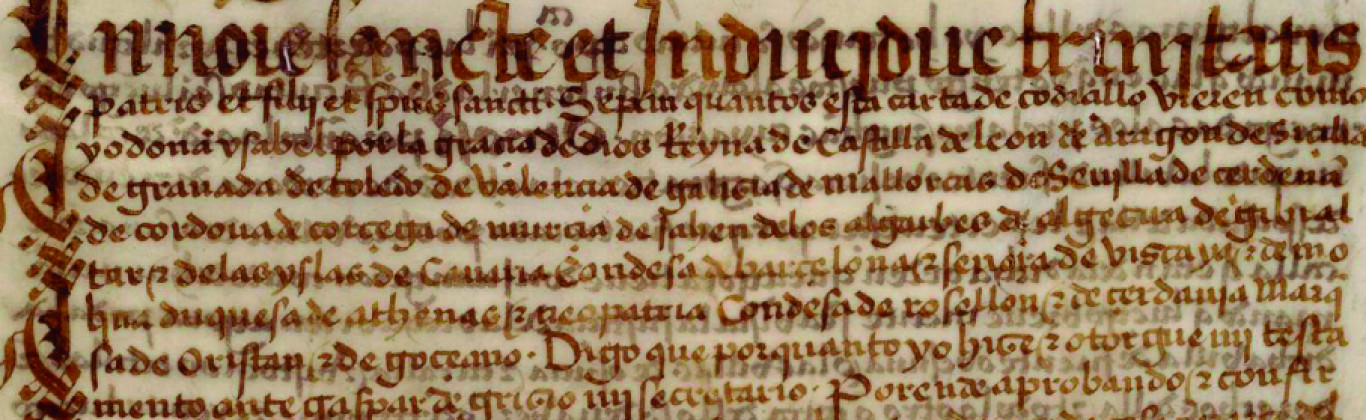 In noīe sancte et Indiuidue trinitatis
patris et filij et spūs sancti. Sepan quantos esta carta de codiçillo vieren como
yo doña ysabel por la gracia de dios Reyna de Castilla de leon de aragon de Sicilia
de granada de toledo de valencia de galisia de mallorcas de Seuilla de cerdeña
de cordoua de corcega de murcia de Jahen delos algarbes de algezira de gibral
tar ⁊ delas yslas de Canaria Condesa de barcelona ⁊ señora de viscaya ⁊ de mo
lina duquesa de athenas ⁊ neopatria Condesa de rosellon ⁊ de cerdania marq
sa de Oristan ⁊ de goceano. Digo que por quanto yo hize ⁊ otorgue mi testa
mento ante gaspar de grizio mi secretario. Por ende aprobando ⁊ confir